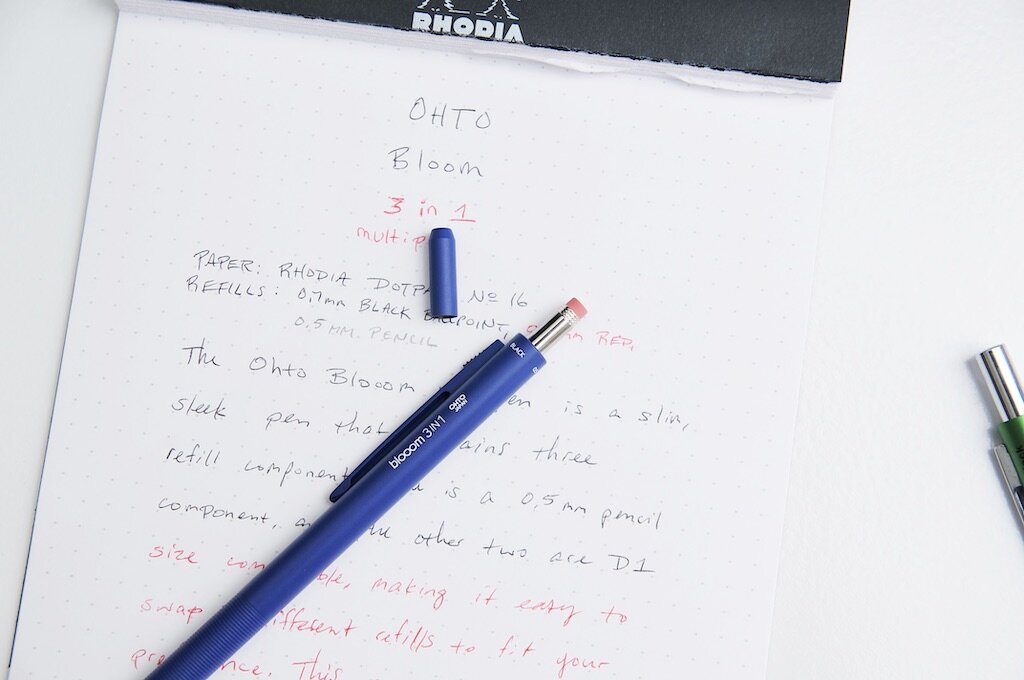 RHODIA
OHTO
Bloom
3 in 1
multip
PAPER: RHODIA DOTPA No 16
REFILLS: 0.7mm BLACK BALLPOINT, mm RED,
0.5 MM PENCIL
The Ohto Blooom en is a slim,
sleek pen that ains three
refill component is a 0.5mm pencil
component, the other two are D1
size com ble, making it easy to
swap different refills to fit your
pre nce. This
BLACK
OHTO
JAPAN
blooom 3IN1